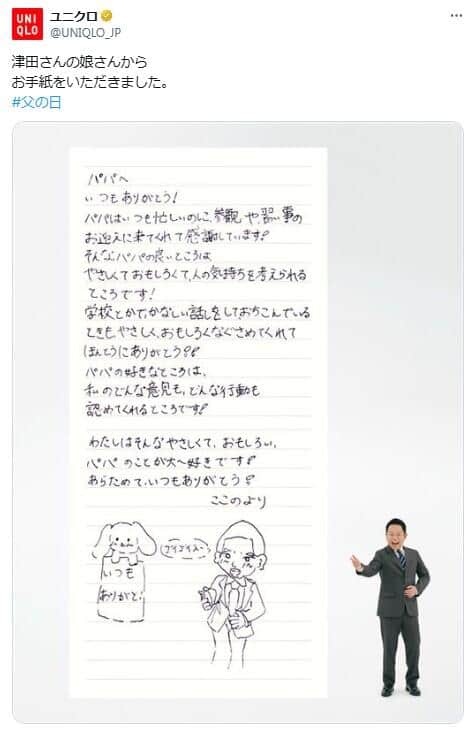 UNI
QLO
ユニクロ
@UNIQLO_JP
津田さんの娘さんから
お手紙をいただきました。
#父の日
パパへ
いつもありがとう!
パパはいつも忙しいのに、参観や、習い事の
お迎えに来てくれて感謝しています!
そんなパパの良いところは
やさしくておもしろくて、人の気持ちを考えられる
ところです!
学校とかで、かなしい話しをして、おちこんでいる
ときも、やさしく、おもしろくなぐさめてくれて
ほんとうにありがとう!!
パパの好きなところは、
私のどんな意見も、どんな行動も
認めてくれるところです!
わたしはそんなやさしくて、おもしろい、
パパのことが大〜好きです!
あらためて、いつもありがとう!
ここのより
いつも
ありがと!